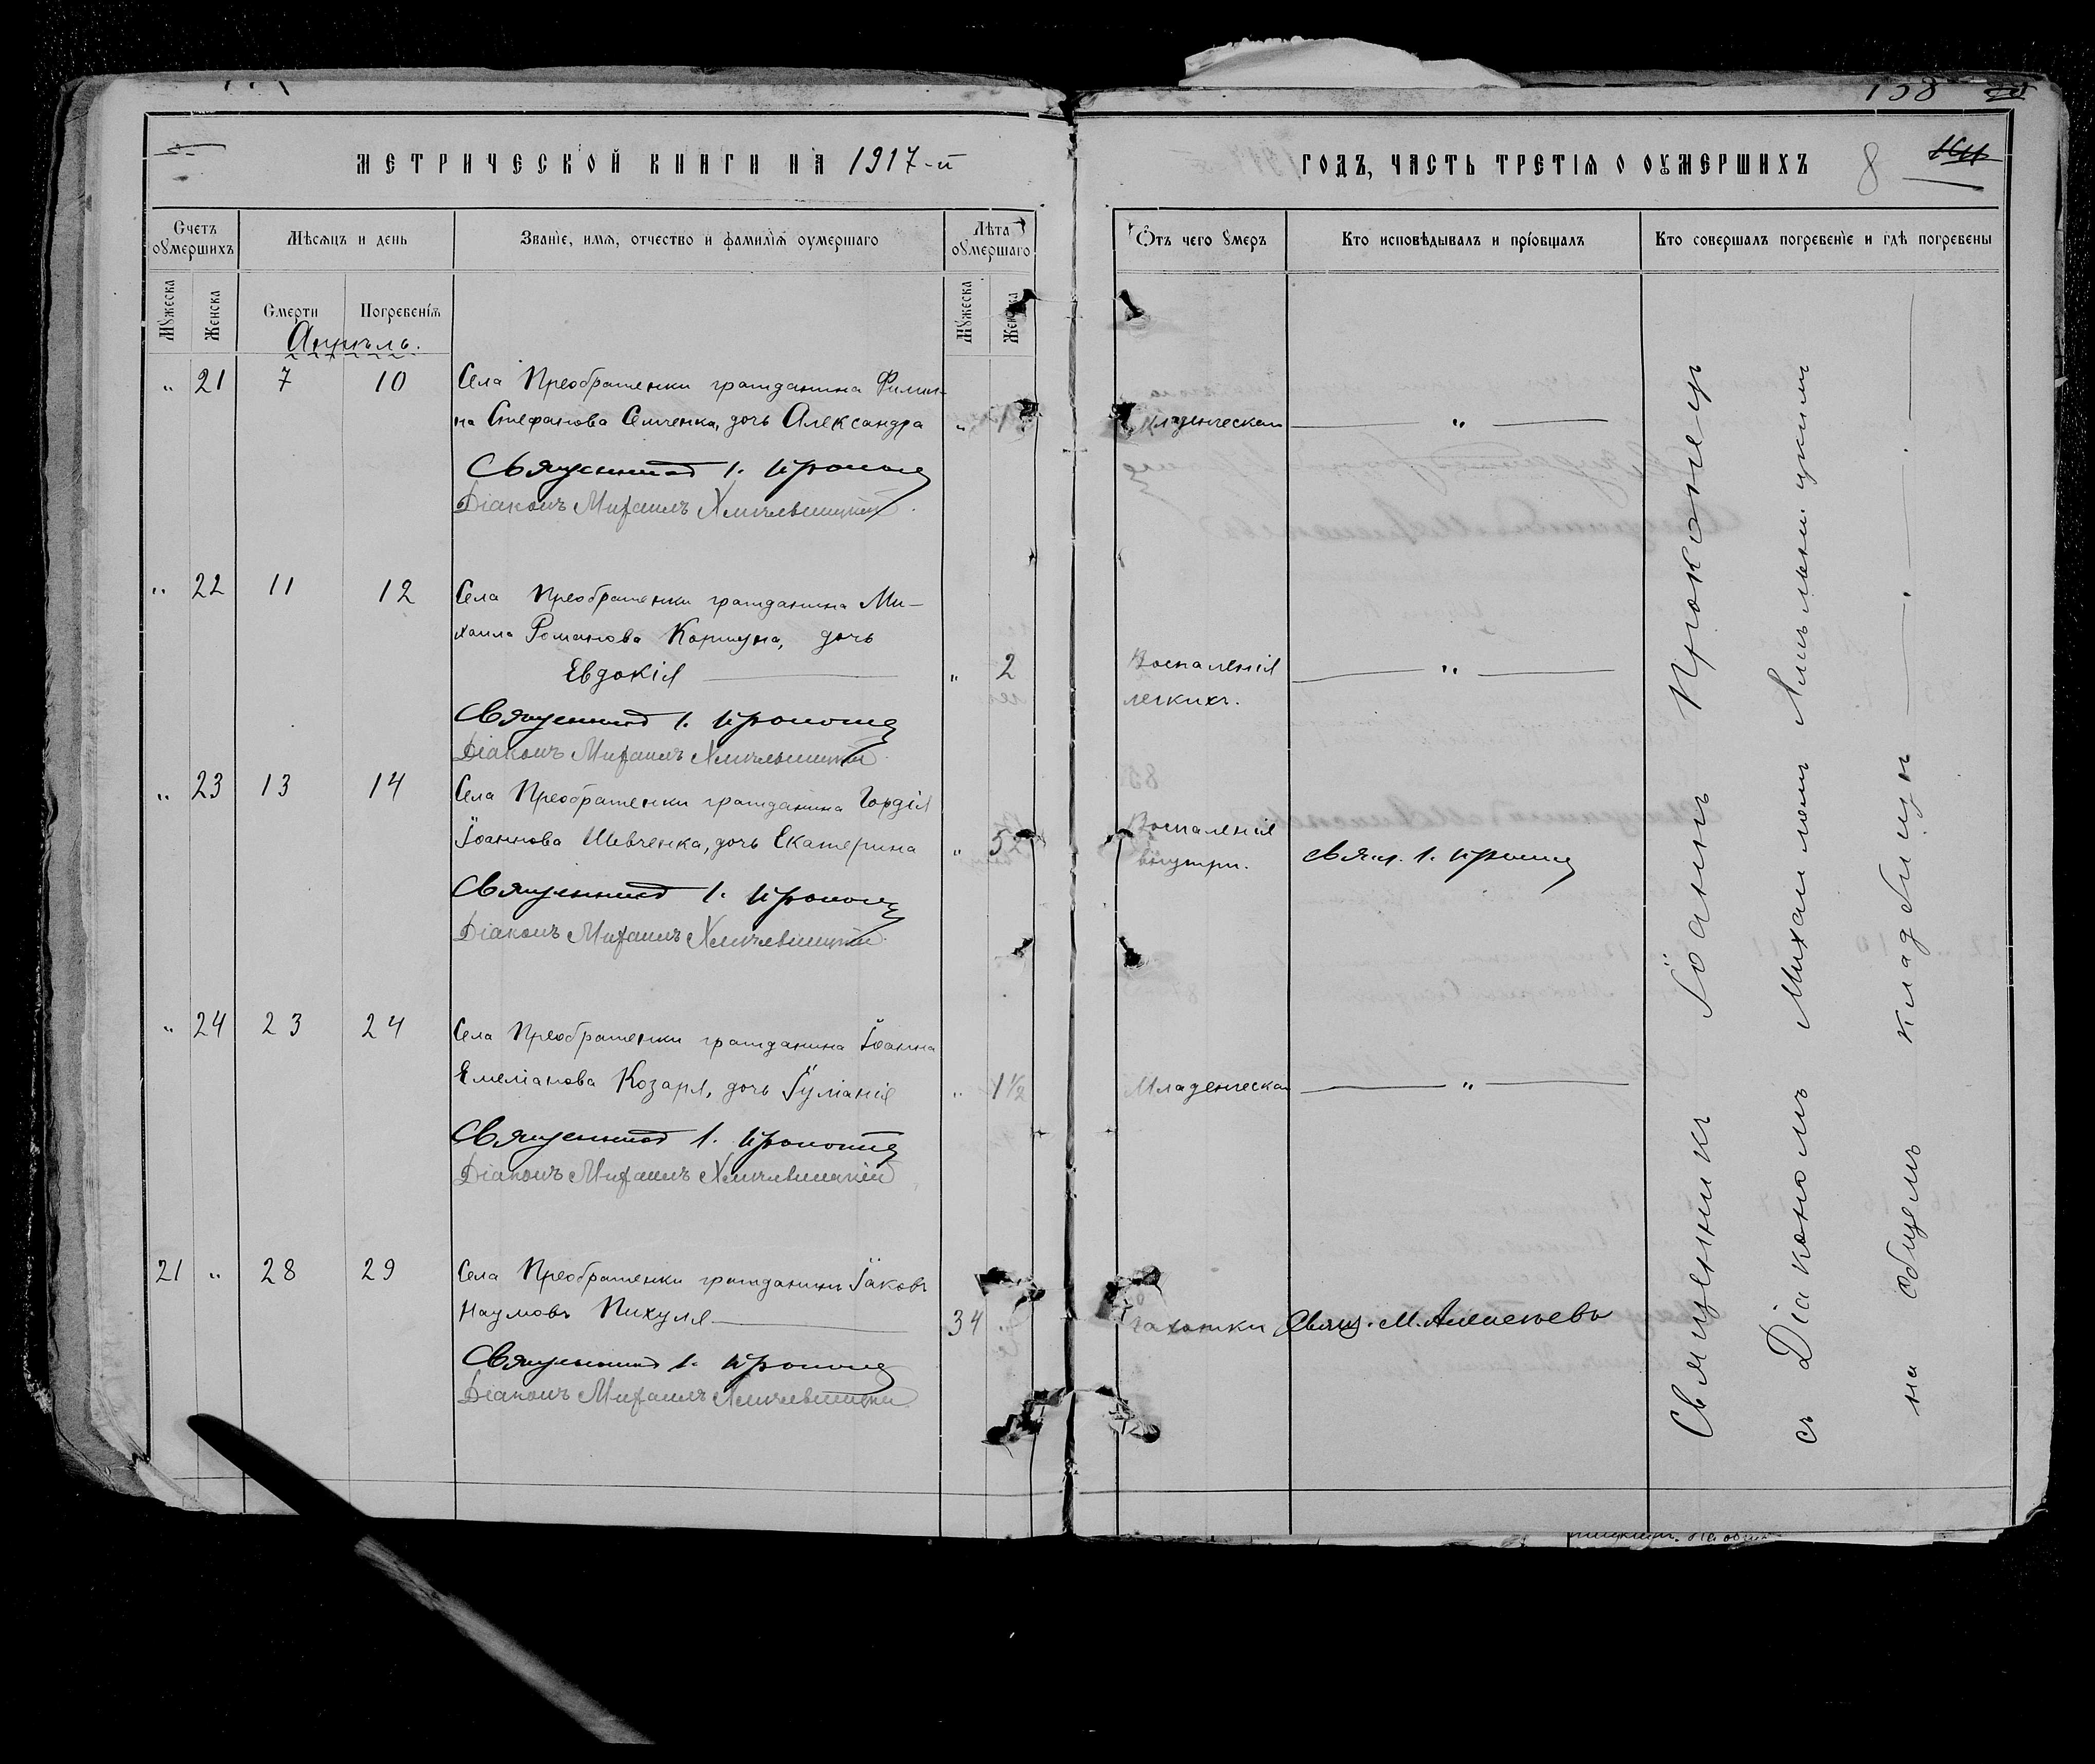 158
МЕТРИЧЕСКОЙ КНИГИ НА 1917-й
ГОДЪ, ЧАСТЬ ТРЕТІЯ О ОУМЕРШИХЪ 8
Счетъ оумершихъ
Мѣсяцъ и день
Званіе, имя, отчество и фамилія оумершаго
Лѣта оумершаго
Отъ чего умеръ
Кто исповѣдывалъ и пріобщалъ
Кто совершалъ погребеніе и гдѣ погребены
Мужеска
Женска
Смерти
Погребенія
Мужеска
Женска
Апрѣль.
" 21 7 10 Села Преображенки гражданина
на Стефанова Семченка, дочь Александра " 1 Младенческая "
Священникъ І.
Діаконъ Михаилъ
" 22 11 12 Села Преображенки гражданина Ми-
хаила Романова Коршуна, дочь
Евдокія " 2 Воспаленія "
легкихъ.
Священникъ І.
Діаконъ Михаилъ
" 23 13 14 Села Преображенки гражданина Гордія
Іоаннова Шевченка, дочь Екатерина " 52 Воспаленія
внутри. Свящ. І.
Священникъ І.
Діаконъ Михаилъ
" 24 23 24 Села Преображенки гражданина Іоанна
Емеліанова Козаря, дочь Іуліанія " 1½ Младенческая "
Священникъ І.
Діаконъ Михаилъ
21 " 28 29 Села Преображенки гражданинъ Іаковъ
Наумовъ Пихуля 34 " Чахотки Свящ. М. Алексѣевъ
Священникъ І.
Діаконъ Михаилъ
Священникъ Іоаннъ
съ Діакономъ Михаиломъ
на общемъ кладбищѣ